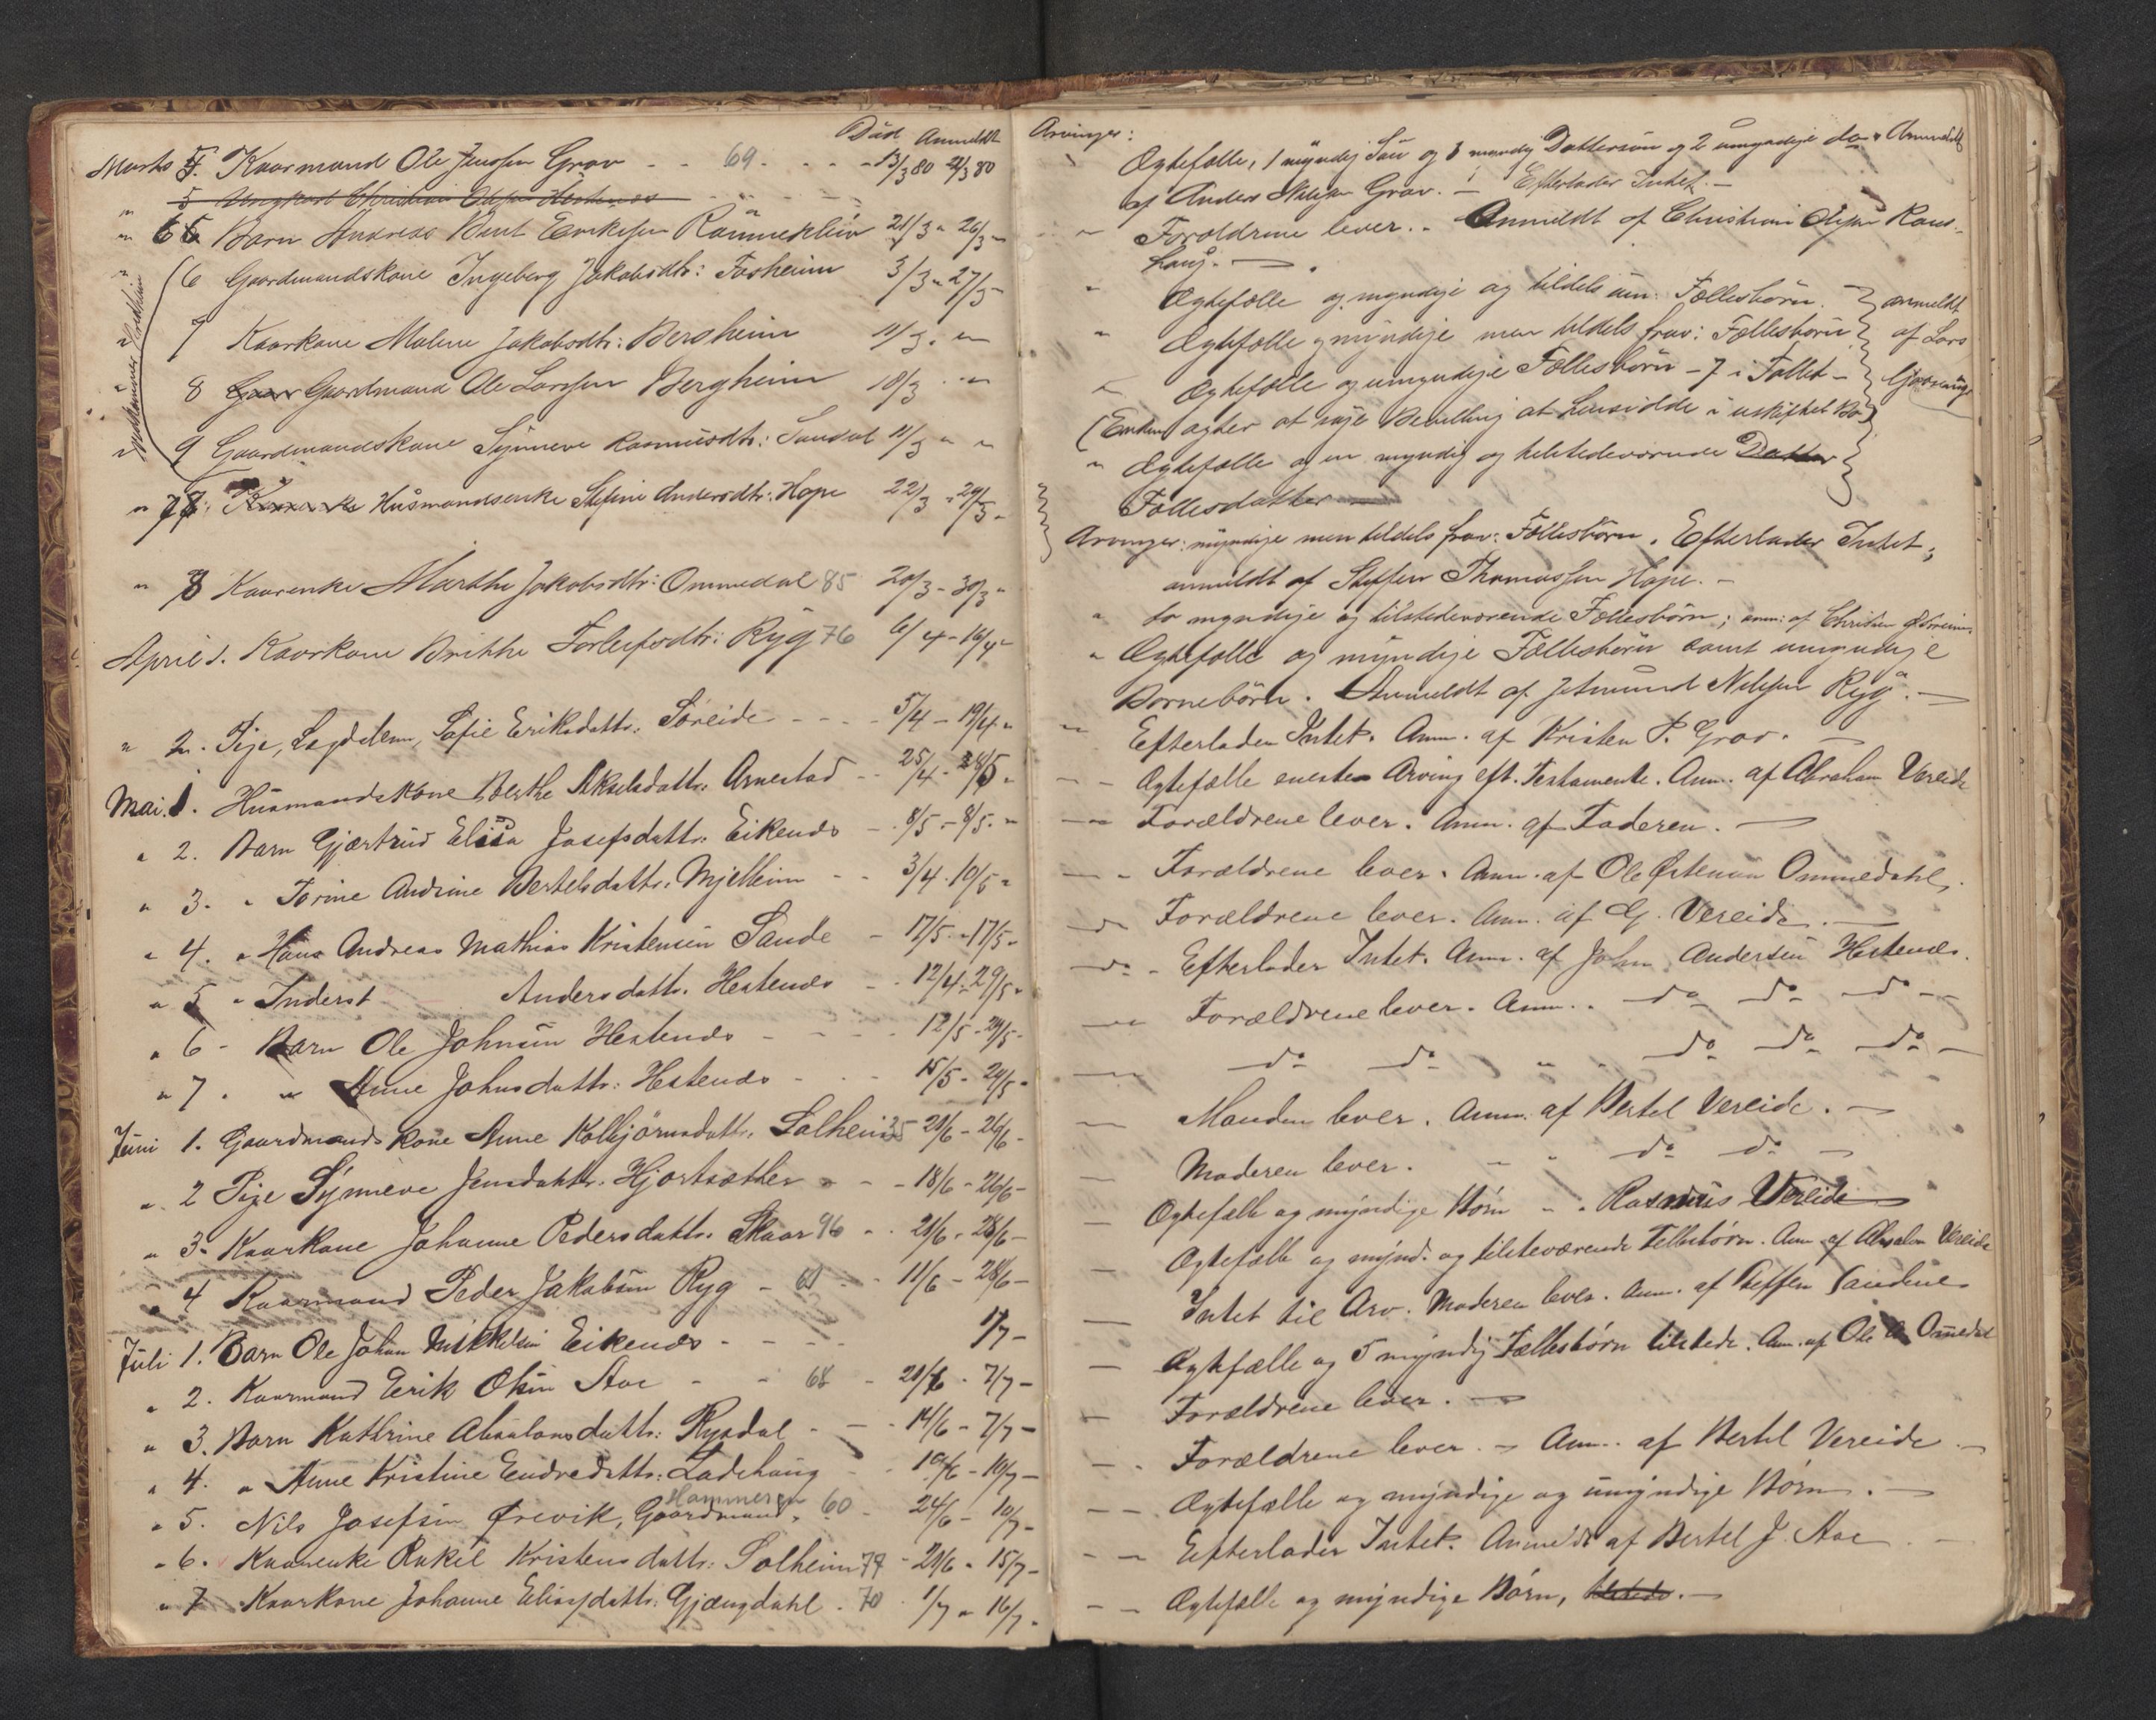 Död Anmeldt
Marts 5. Kaarmand Ole Jensen Grov - - 69 - - - 13/3 80 21/3 80
" 5 Ungkarl Christian Olsen Hestenes
" 6 Barn Andreas Bent Eriksen Rönnekleiv 21/3 " 26/3 "
" 6 Gaardmandskone Ingeborg Jakobsdtr: Fosheim 3/3 " 27/3 "
" 7 Kaarkone Malene Jakobsdtr: Bergheim 11/3 " "
" 8 Gaardmand Ole Larssen Bergheim 18/3 " "
" 9 Gaardmandskone Synneve Rasmusdtr: Sandal 11/3 " "
" 7: Husmandsenke Stefine Andersdtr: Hope 22/3 " 29/3 "
" 8 Kaarenke Marthe Jakobsdtr: Ommedal 85 20/3 - 30/3 "
April 1. Kaarkone Brithe Torleifsdtr: Ryg 76 6/4 - 16/4 "
" 2. Pige, Lægdslem, Sofie Eriksdattr: Söreide - - - 5/4 - 19/4 "
Mai 1. Husmandskone Berthe Akselsdattr: Arnestad - - 25/4 - 28/5 "
" 2. Barn Gjærtrud Elisa Josefsdattr: Eikenæs - . 8/5 - 8/5 . "
" 3. " Torine Andrine Bertelsdattr. Mjellheim - - 3/4 . 10/5 "
" 4. " Hans Andreas Mathias Kristensen Sande - 17/5 . " 17/5 "
" 5 " Inderst Andersdattr. Hestenæs - . 12/4 - 29/5 "
" 6 - Barn Ole Johnsen Hestenæs - - - - 12/5 - 29/5 -
" 7 . " Anne Johnsdattr: Hestenæs - . - 15/5 - 29/5 "
Juni 1. Gaardmandskone Anne Kolbjörnsdattr. Solheim 35 21/6 - 26/6 -
" 2 Pige Synneve Jensdattr. Hjortsæther - - 18/6 - 26/6 -
" 3 " Kaarkone Johanne Pedersdattr. Skaar 96 - . 21/6 . 28/6 -
" 4 Kaarmand Peder Jakobsen Ryg - 61 - - 11/6 - 28/6 -
Juli 1. Barn Ole Johan Mikkelsen Eikenæs - - - - 1/7 -
" 2. Kaarmand Erik Olsen Aae - - 68 - 21/6 . 7/7 -
" 3. Barn Kathrine Absalonsdattr: Rysdal - - . 14/6 - 7/7 -
" 4. " Anne Kristine Endresdattr: Ladehaug - - 19/6 - 10/7 -
Hammeren
" 5. Nils Josefsen Ørevik, Gaardmand, 60 - 24/6 - 10/7 -
" 6. Kaarenke Rakel Kristensdattr: Solheim 77 - 21/6 - 15/7 -
" 7 Kaarkone Johanne Eliasdattr: Gjængdahl . 70 . 1/7 " 16/7 .
Arvinger:
Ægtefælle, 1 myndig Sön og 3 myndig Dattersön og 2 umyndige do " Anmeldt
af Anders Nilsen Grov. - Efterlader Intet. -
Forældrene lever. - Anmeldt af Christian Olsen
haug. -
" Ægtefælle og myndige og tildels um: Fællesbörn. anmeldt
" Ægtefælle og myndige men tildels frav: Fællesbörn af Lars
" Ægtefælle og umyndige Fællesbörn - 7 i Tallet -
(Enken agter at söge Bevilling at hensidde i uskiftet Bo)
" Ægtefælle og en myndig og tilstedeværende Datter
Fællesdatter -
Arvinger: myndige men tildels frav: Fællesbörn. Efterlader Intet;
anmeldt af Steffen Thomassen Hope. -
" to myndige og tilstedeværende Fællesbörn; anm: af Christen
" Ægtefælle og myndige Fællesbörn samt umyndige
Börnebörn. Anmeldt af Jetmund Nilsen Ryg. -
" Efterlader Intet. Anm. af Kristen P. Grov. -
- - Ægtefælle eneste Arving eft. Testamente. Anm. af Abraham Vereide
- " Forældrene lever. Anm. af Faderen. -
- " Forældrene lever. Anm. af Ole Østensen Ommedahl.
- " Forældrene lever. Anm. af G. Vereide. -
- " - Efterlader Intet. Anm. af John Andersen Hestenæs.
- " Forældrene lever. Anm. . - do - do - do - -
- do do " " . - do - do - do -
- Manden lever. Anm. af Bertel Vereide. -
- Moderen lever. - " do do -
- Ægtefælle og myndige Börn - . Rasmus Vereide
- Ægtefælle og mynd. og tilsteværende Fællesbörn. Anm. af Absalon Vereide
- Intet til Arv. Moderen lever. Anm. af Steffen Sandene
- Ægtefælle og 5 myndig Fællesbörn tilstede. Anm. af Ole A Ommedal
- Forældrene lever. -
- . Forældrene lever. - Anm. af Bertel Vereide -
- - Ægtefælle og myndige og umyndige Börn. -
- - Efterlader Intet. Anmeldt af Bertel J. Aae -
- - Ægtefælle og myndige Börn, tilstede. -